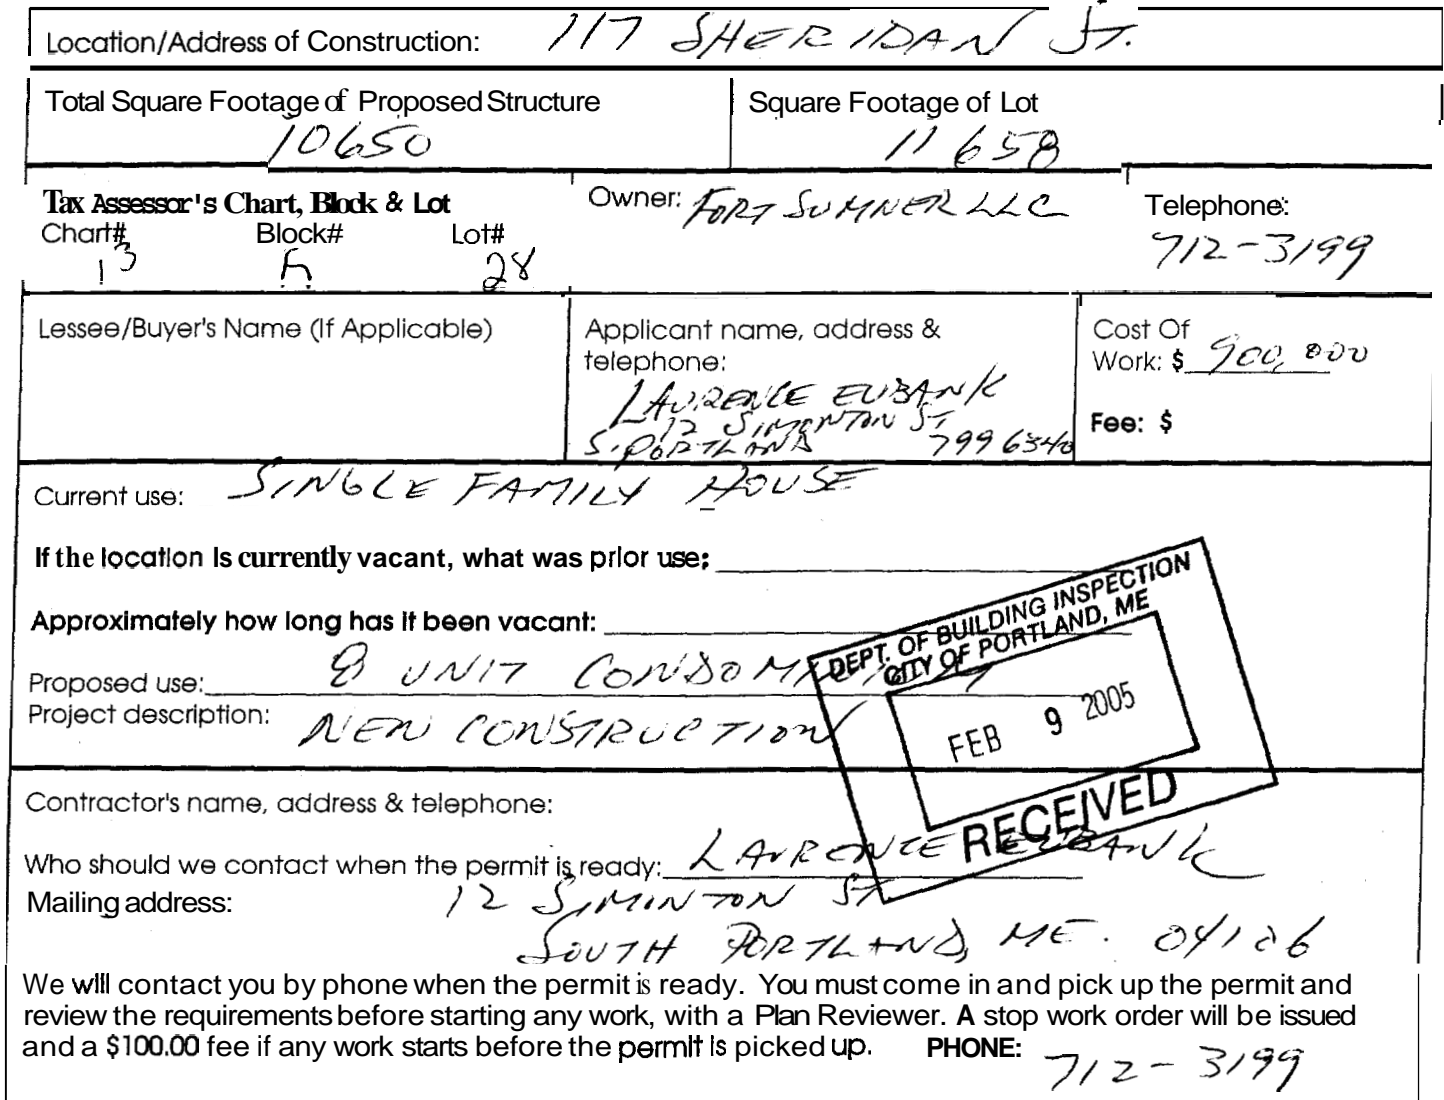 Location/Address of Construction: 117 SHERIDAN ST.
Total Square Footage of Proposed Structure
10650
Square Footage of Lot
11658
Tax Assessor's Chart, Block & Lot
Chart# Block# Lot#
13 28
Owner: FORT SUMNER LLC
Telephone:
712-3199
Lessee/Buyer's Name (If Applicable)
Applicant name, address &
telephone:
LAURENCE EUBANK
12 SIMONTON ST
S. PORTLAND 799 6340
Cost Of
Work: $ 900,000
Fee: $
Current use: SINGLE FAMILY HOUSE
If the location is currently vacant, what was prior use:
Approximately how long has it been vacant:
Proposed use: 8 UNIT CONDOMINIUM
Project description: NEW CONSTRUCTION
DEPT. OF BUILDING INSPECTION
CITY OF PORTLAND, ME
FEB 9 2005
RECEIVED
Contractor's name, address & telephone:
Who should we contact when the permit is ready: LAURENCE EUBANK
Mailing address: 12 SIMINTON ST
SOUTH PORTLAND, ME. 04106
We will contact you by phone when the permit is ready. You must come in and pick up the permit and
review the requirements before starting any work, with a Plan Reviewer. A stop work order will be issued
and a $100.00 fee if any work starts before the permit is picked up. PHONE: 712-3199